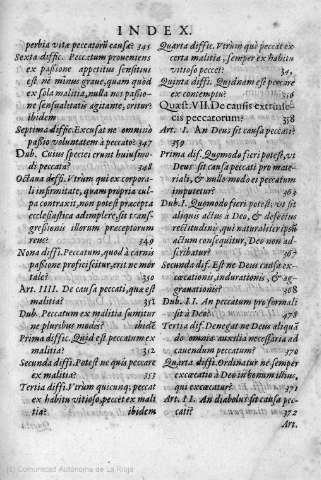 INDEX.
perbia vitæ peccatorũ causa? 345
Sexta diffic. Peccatum proueniens
ex passione appetitus sensitiui
est ne minus graue, quam quod
ex sola malitia, nulla nos passio-
ne sensualitatis agitante, oritur?
ibidem
Septima diffic. Excusat ne omninò
passio voluntatem à peccato? 347
Dub. Cuius speciei erunt huiusmo-
di peccata? 348
Octaua diffi. Vtrum qui ex corpora-
li infirmitate, quam propria cul-
pa contraxit, non potest præcepta
ecclesiastica adimplere, sit trans-
gressionis illorum preceptorum
reus? 349
Nona diffi. Peccatum, quod à carnis
passione proficiscitur, erit ne mor-
tale? 350
Art. IIII. De causa peccati, quæ est
malitia? 351
Dub. Peccatum ex malitia sumitur
ne pluribus modis? ibidē
Prima diffic. Quid est peccatum ex
malitia? 352
Secunda diffi. Potest ne quis peccare
ex malitia? 353
Tertia diffi. Vtrum quicunq; peccat
ex habitu vitioso, peccet ex mali
tia? ibidem
Quarta diffic. Vtrùm qui peccat ex
certa malitia, semper ex habitu
vitioso peccet?
Quinta diffic. Quidnam est peccare
ex contemptu?
Quæst. VII. De causis extrinse-
cis peccatorum? 358
Art. I. An Deus sit causa peccati?
359
Prima dif. Quomodo fieri potest, vt
Deus sit causa peccati pro mate-
riali, & nullo modo ei peccatum
imputetur?
Dub. I. Quomodo fieri potest, vt sit
aliquis actus à Deo, & defectus
rectitudinis, qui naturaliter ipsum
actum consequitur, Deo non ad-
scribatur? 367
Secunda dif. Est ne Deus causa ex-
cæcationis, indurationis, & ag-
grauationis?
Dub. II. An peccatum pro formali
sit à Deo?
Tertia dif. Denegat ne Deus aliquã
do omnia auxilia necessaria ad
cauendum peccatum? 370
Quarta diffi. Ordinatur ne semper
excæcatio à Deo in bonum illius,
qui excæcatur? 371
Art. II. An diabolus sit causa pec-
cati? 372
Art.
(c) Comunidad Autónoma de La Rioja